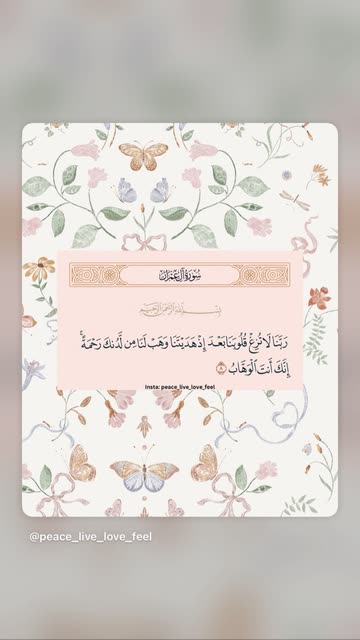 سُورَةُ آلِ عِمْرَانَ
بِسْمِ اللَّهِ الرَّحْمَٰنِ الرَّحِيمِ
رَبَّنَا لَا تُزِغْ قُلُوبَنَا بَعْدَ إِذْ هَدَيْتَنَا وَهَبْ لَنَا مِن لَّدُنكَ رَحْمَةً ۚ
إِنَّكَ أَنتَ ٱلْوَهَّابُ ٨
Insta: peace_live_love_feel
@peace_live_love_feel